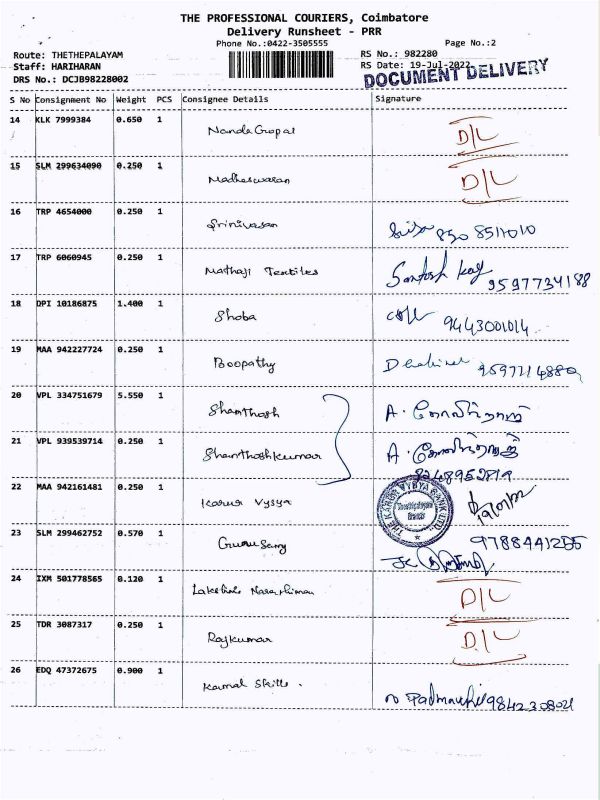 THE PROFESSIONAL COURIERS, Coimbatore
Delivery Runsheet - PRR
Phone No.:0422-3505555
Page No.:2
Route: THETHEPALAYAM
RS No.: 982280
Staff: HARIHARAN
RS Date: 19-Jul-2022
DRS No.: DCJB98228002
DOCUMENT DELIVERY
S No Consignment No Weight PCS Consignee Details Signature
14 KLK 7999384 0.650 1 Nanda Gopal D/L
15 SLM 299634090 0.250 1 Madheswaran D/L
16 TRP 4654000 0.250 1 Srinivasan
17 TRP 6060945 0.250 1 Mathaji Textiles Santosh 9597734188
18 DPI 10186875 1.400 1 Shoba 9443001014
19 MAA 942227724 0.250 1 Boopathy
20 VPL 334751679 5.550 1 Shanthosh A.
21 VPL 939539714 0.250 1 Shanthoshkumar A.
8248952819
22 MAA 942161481 0.250 1 Karur Vysya
THE KARUR VYSYA BANK LTD.
Thethipalayam
Branch
23 SLM 299462752 0.570 1 Guru Samy
24 IXM 501778565 0.120 1 D/L
25 TDR 3087317 0.250 1 Rajkumar D/L
26 EDQ 47372675 0.900 1 Kamal Skills.